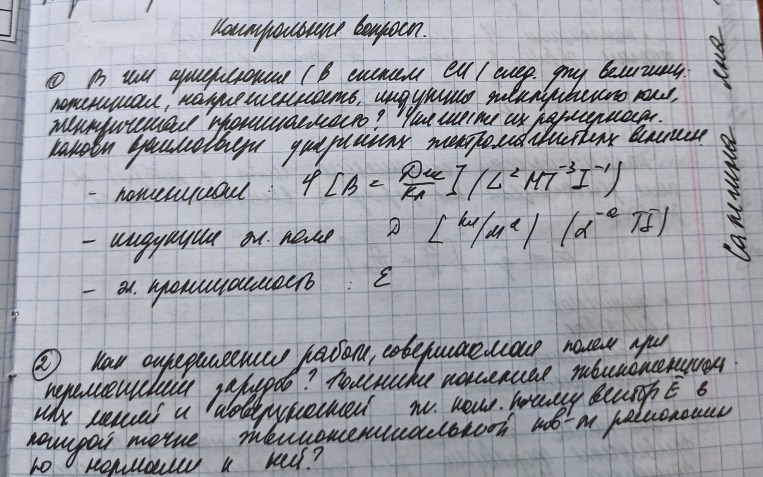 Контрольные вопросы.
① В чем измеряются (в системе СИ) след. физ величины:
потенциал, напряженность, индукция электрического поля,
электрическая проницаемость? Укажите их размерности.
Каковы взаимосвязи указанных электромагнитных величин.
- потенциал : φ [В = Дж/Кл] (L² M T⁻³ I⁻¹)
- индукция эл. поля D [Кл/м²] (L⁻² T I)
- эл. проницаемость : ε
② Как определяется работа, совершаемая полем при
перемещении зарядов? Поясните понятия эквипотенциаль-
ных линий и поверхностей эл. поля. почему вектор E̅ в
каждой точке эквипотенциальной пов-ти расположен
по нормали к ней?
Сапегина Яна